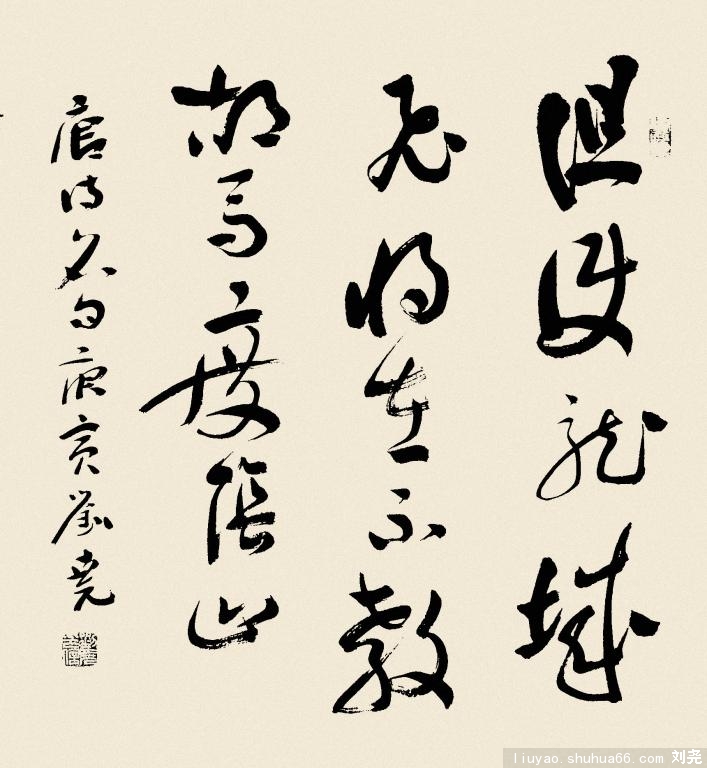 但使龙城
飞将在不教
胡马度阴山
唐诗名句庚寅刘尧
liuyao.shuhua66.com 刘尧